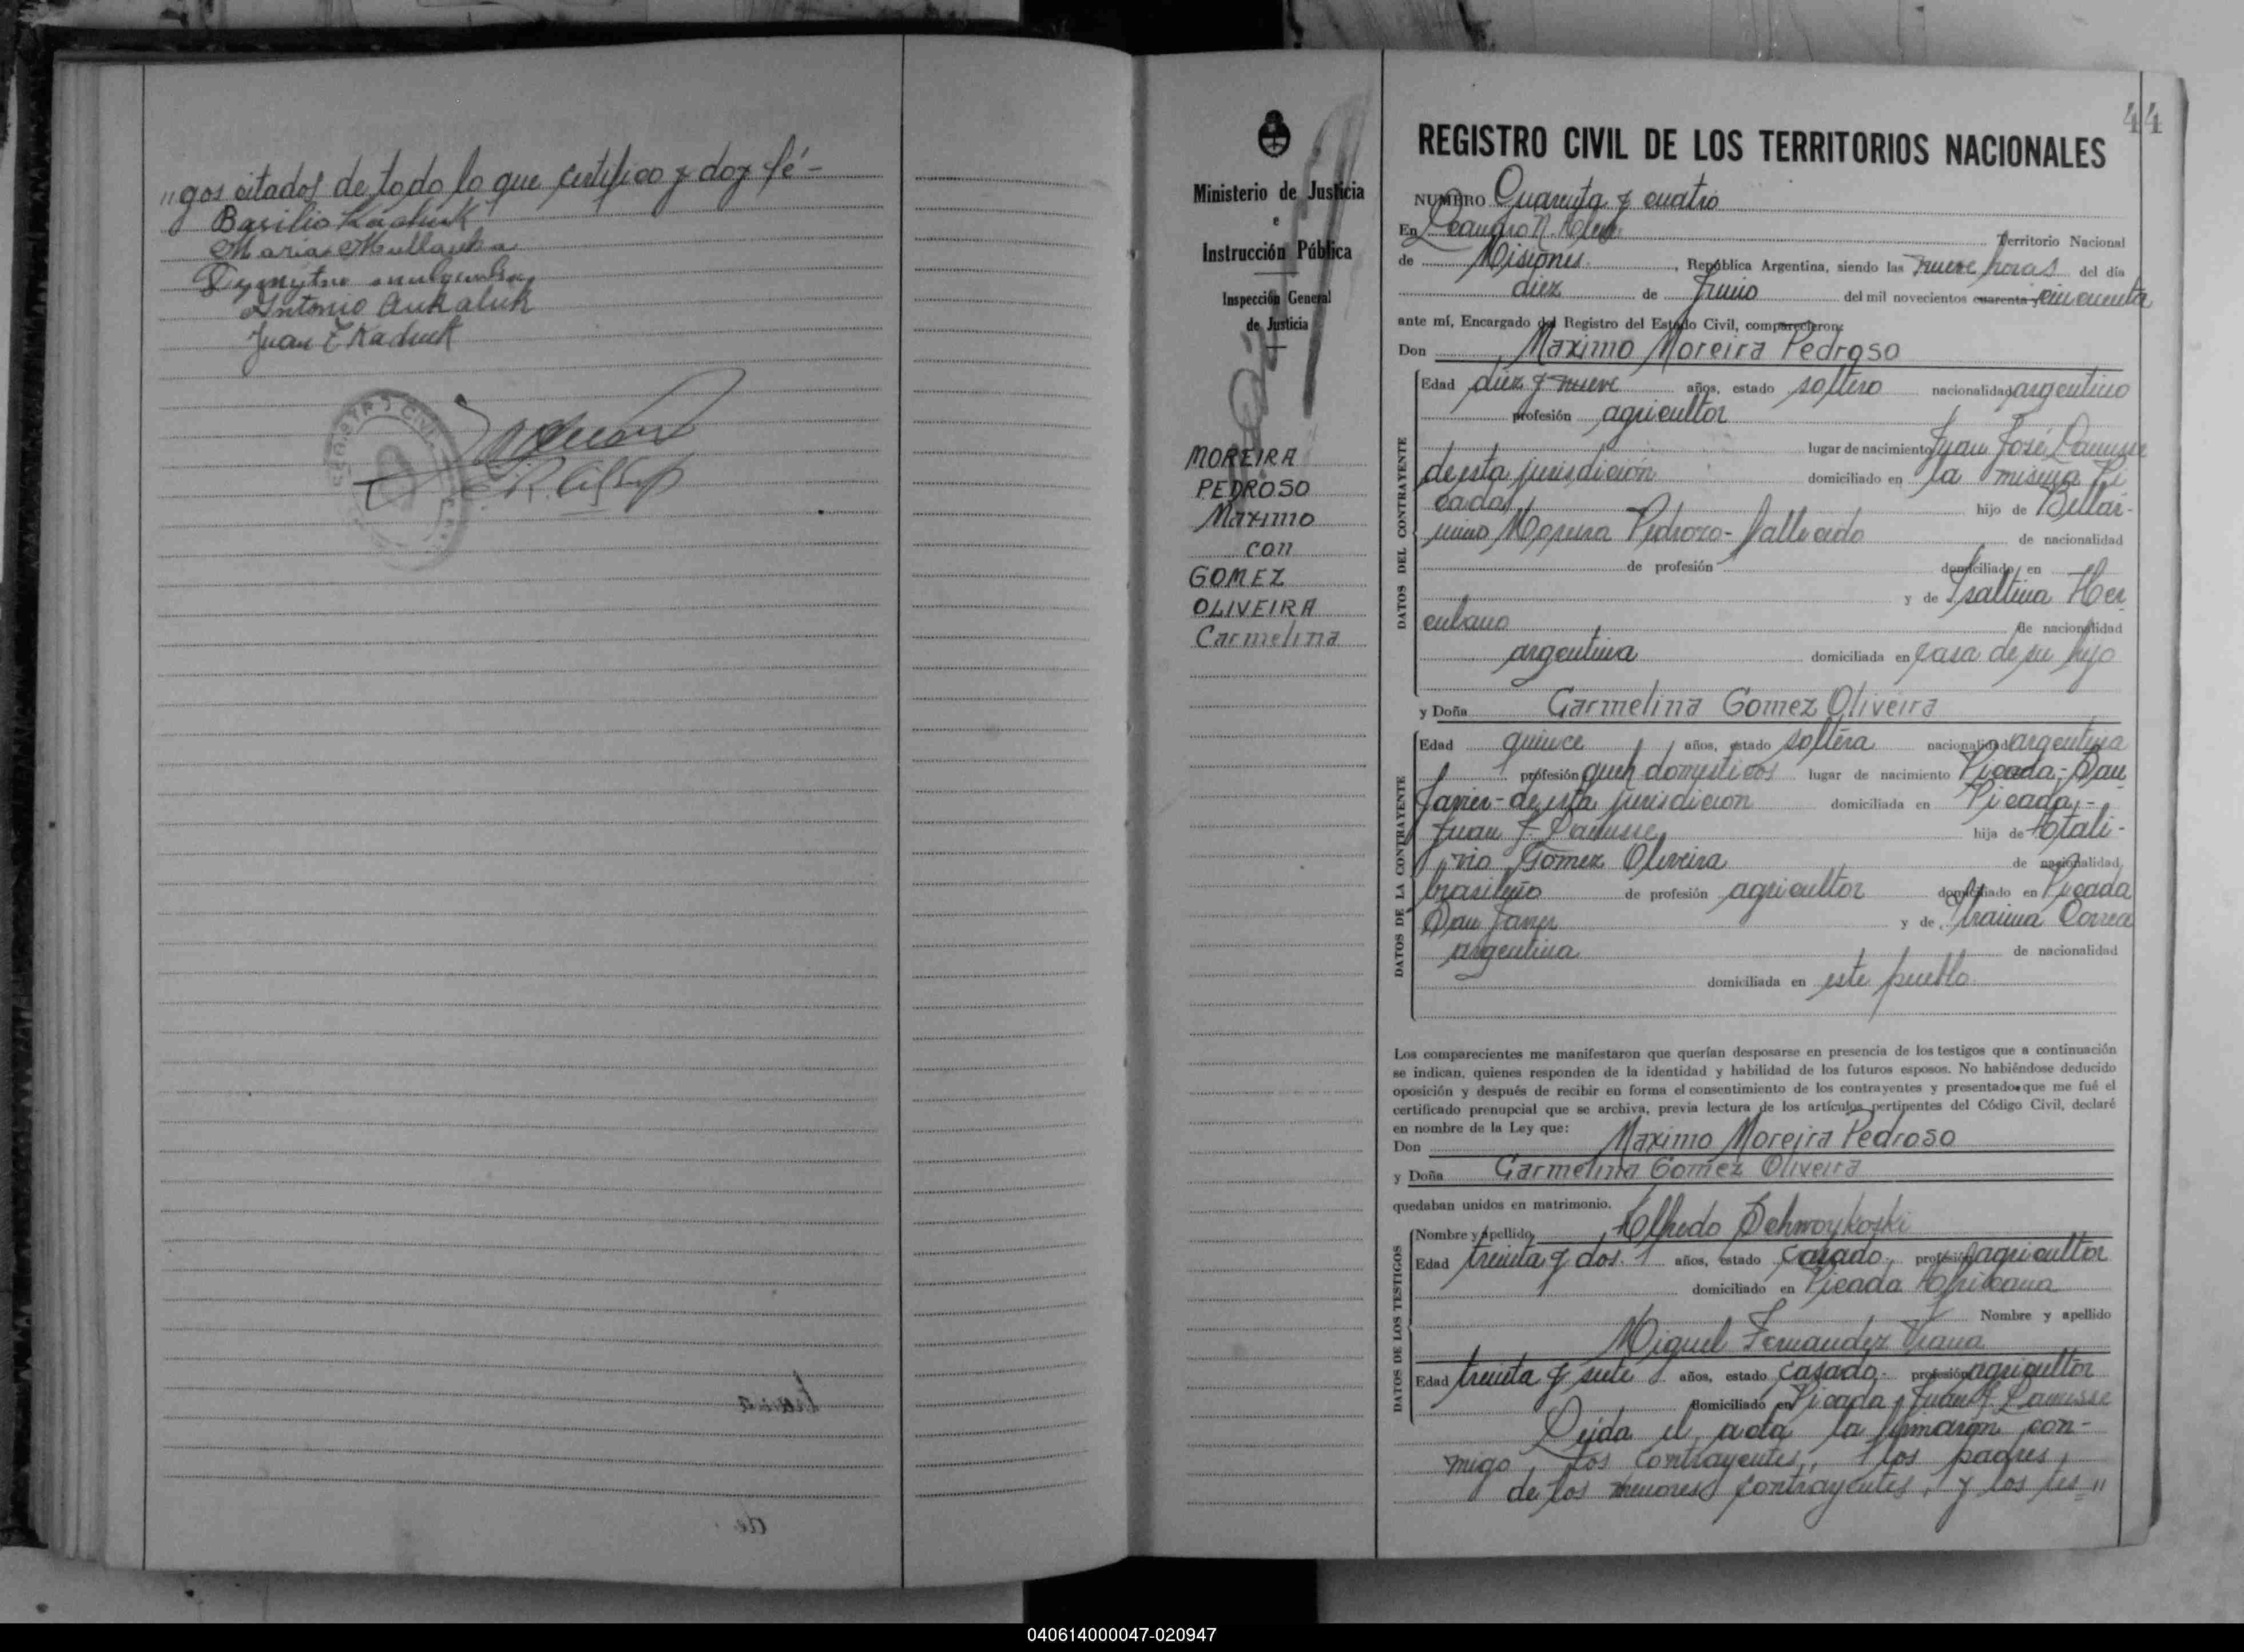 "gos citados de todo lo que certifico y doy fé-
Basilio Kachuk
Maria Mullauka
Antonio Aukaluk
Juan E Kachuk
REGISTRO CIVIL
44
Ministerio de Justicia
e
Instrucción Pública
Inspección General
de Justicia
MOREIRA
PEDROSO
Maximo
con
GOMEZ
OLIVEIRA
Carmelina
REGISTRO CIVIL DE LOS TERRITORIOS NACIONALES
NUMERO Cuarenta y cuatro
En Leandro N. Alem Territorio Nacional
de Misiones, República Argentina, siendo las nueve horas del día
diez de Junio del mil novecientos cuarenta y cincuenta
ante mí, Encargado del Registro del Estado Civil, comparecieron:
Don Maximo Moreira Pedroso
DATOS DEL CONTRAYENTE
Edad diez y nueve años, estado soltero nacionalidad argentino
profesión agricultor
lugar de nacimiento Juan José Lanusse
de esta jurisdición domiciliado en la misma Pi
cada, hijo de Bellar-
mino Moreira Pedrozo- fallecido de nacionalidad
de profesión domiciliado en
y de Isaltina Her
culano de nacionalidad
argentina domiciliada en casa de su hijo
y Doña Carmelina Gomez Oliveira
DATOS DE LA CONTRAYENTE
Edad quince años, estado soltera nacionalidad argentina
profesión queh domesticos lugar de nacimiento Picada-San
Javier-de esta jurisdicion domiciliada en Picada-
Juan J. Lanusse, hija de Atali-
vio Gomez Oliveira de nacionalidad
brasileño de profesión agricultor domiciliado en Picada
San Javier y de Correa
argentina de nacionalidad
domiciliada en este pueblo
Los comparecientes me manifestaron que querían desposarse en presencia de los testigos que a continuación
se indican, quienes responden de la identidad y habilidad de los futuros esposos. No habiéndose deducido
oposición y después de recibir en forma el consentimiento de los contrayentes y presentado que me fué el
certificado prenupcial que se archiva, previa lectura de los artículos pertinentes del Código Civil, declaré
en nombre de la Ley que:
Don Maximo Moreira Pedroso
y Doña Carmelina Gomez Oliveira
quedaban unidos en matrimonio.
DATOS DE LOS TESTIGOS
Nombre y apellido Alfredo Schwoykoski
Edad treinta y dos. años, estado casado- profesión agricultor
domiciliado en Picada Africana
Nombre y apellido
Miguel Fernandez Viana
Edad treinta y siete años, estado casado- profesión agricultor
domiciliado en Picada Juan J. Lanusse
Leida el acta la firmaron con-
migo, los contrayentes, los padres
de los menores contrayentes, y los tes"
040614000047-020947